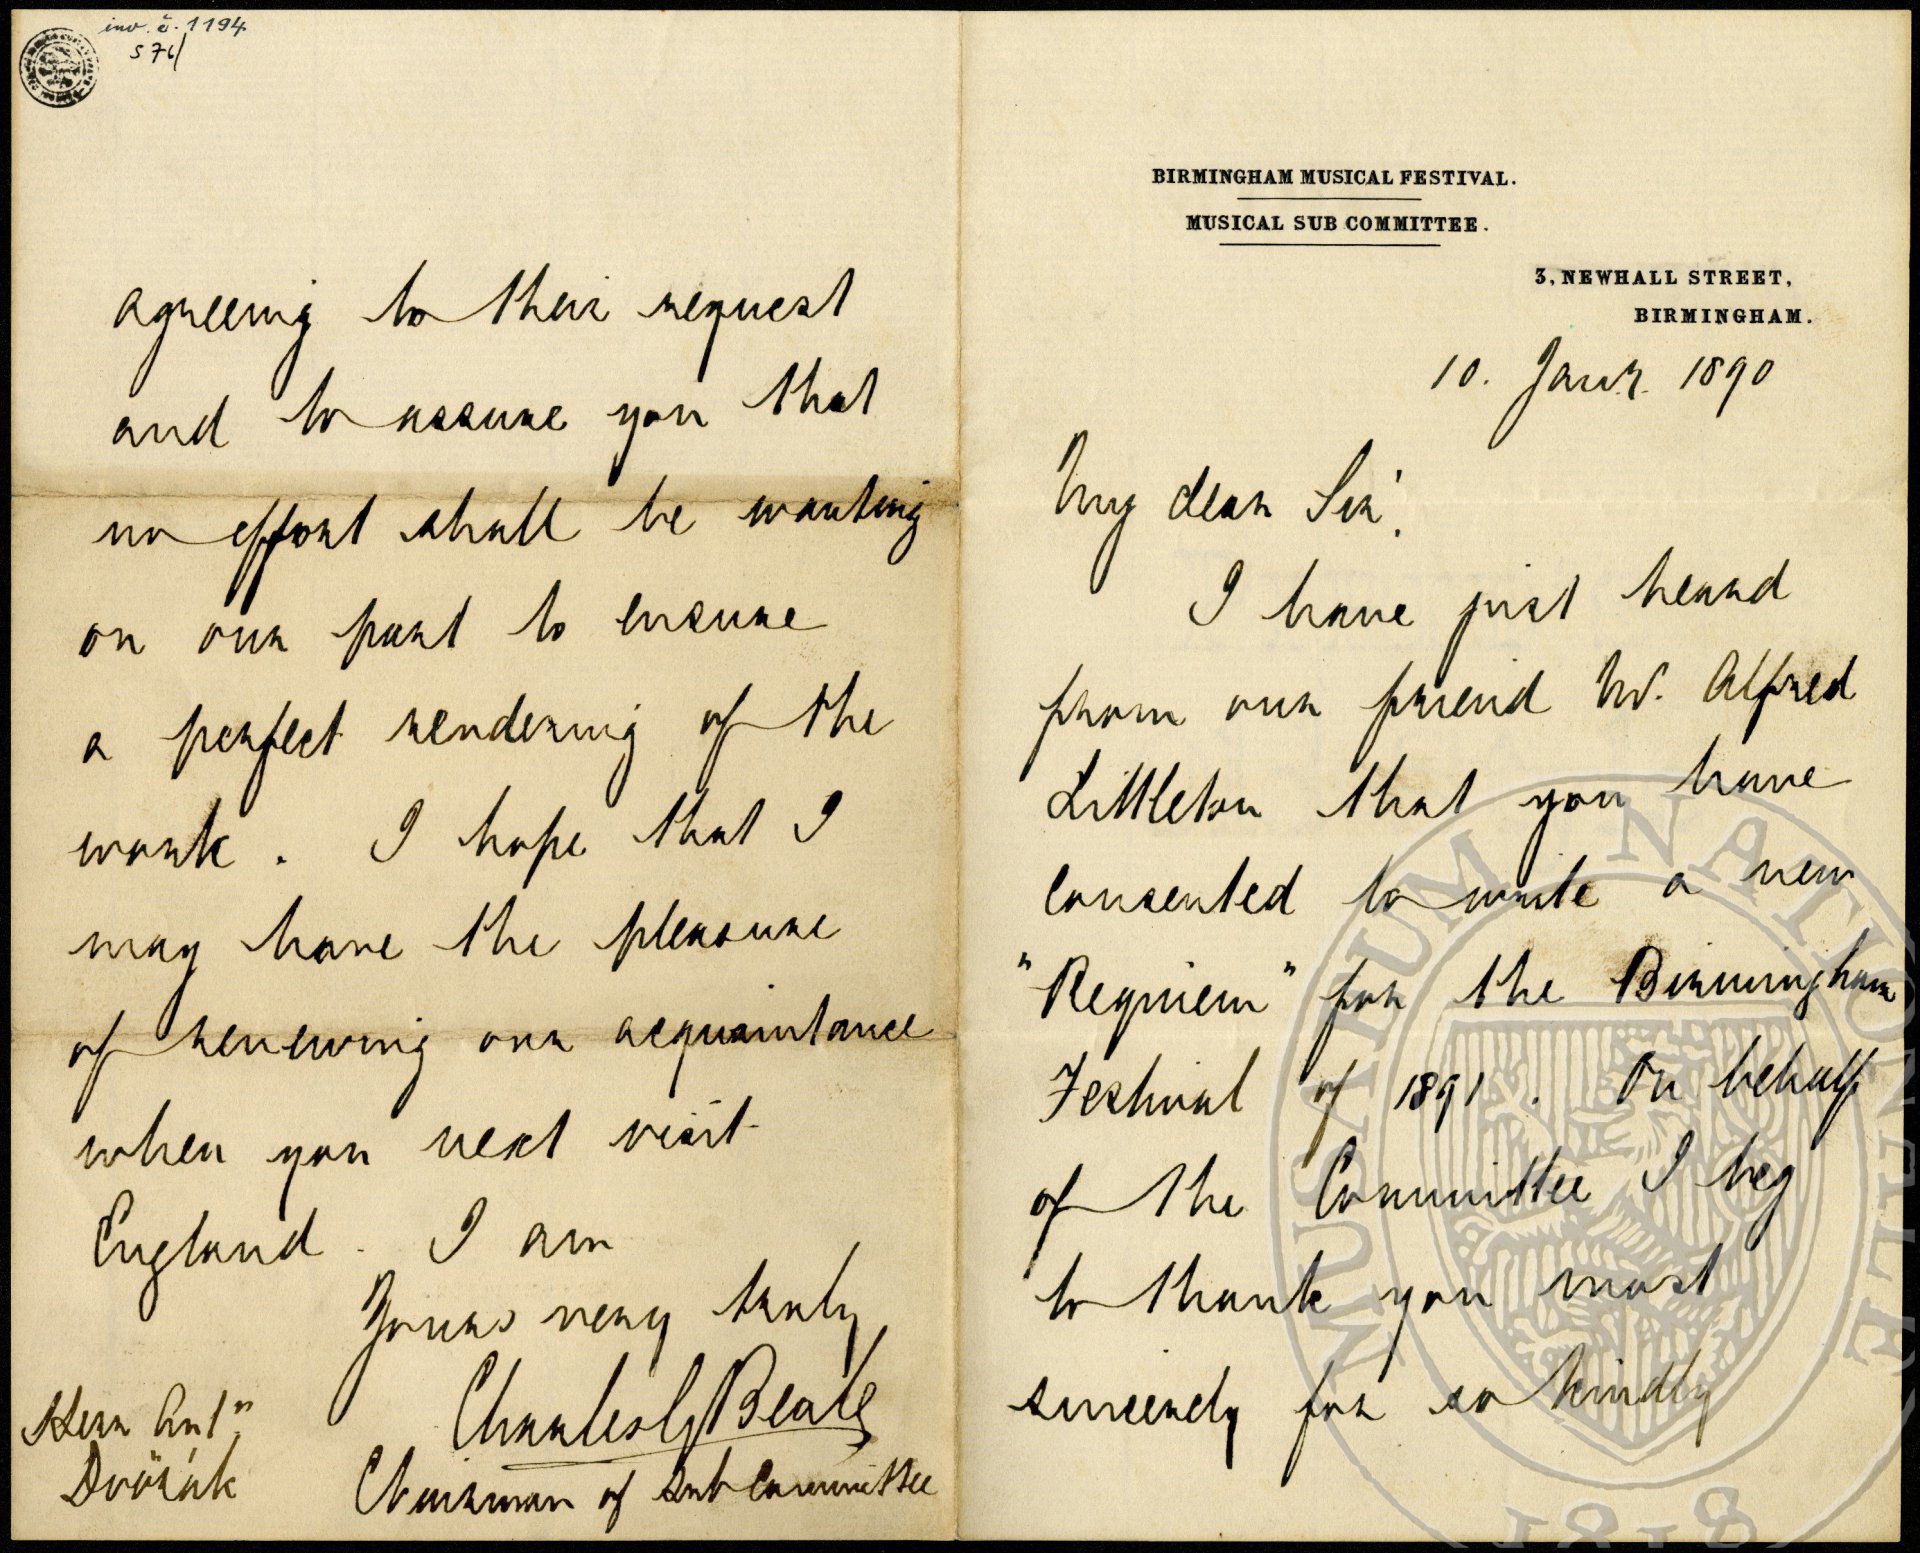 BIRMINGHAM MUSICAL FESTIVAL.
MUSICAL SUB COMMITTEE.
3, NEWHALL STREET,
BIRMINGHAM.
10. Janr. 1890
My dear Sir,
I have just heard
from our friend Mr. Alfred
Littleton that you have
consented to write a new
"Requiem" for the Birmingham
Festival of 1891. On behalf
of the Committee I beg
to thank you most
sincerely for so kindly
inv. č. 1194
S 76/
agreeing to their request
and to assure you that
no effort shall be wanting
on our part to ensure
a perfect rendering of the
work. I hope that I
may have the pleasure
of renewing our acquaintance
when you next visit
England. I am
Yours very truly
Charles G Beale
Chairman of Sub Committee
Herr Antn
Dvořák
MUSAEUM NATIONALE
1818